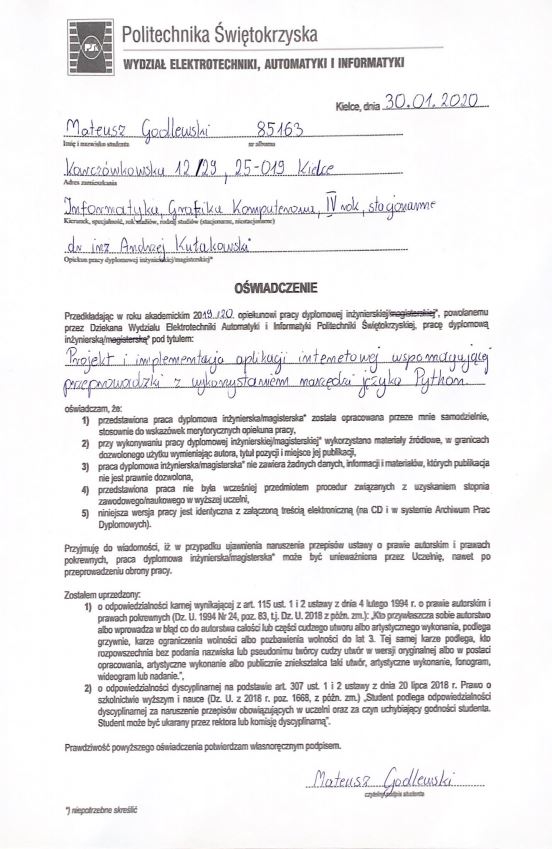 PŚk
Politechnika Świętokrzyska
WYDZIAŁ ELEKTROTECHNIKI, AUTOMATYKI I INFORMATYKI
Kielce, dnia 30.01.2020
Mateusz Godlewski 85163
Imię i nazwisko studenta nr albumu
Karczówkowska 12/29, 25-019 Kielce
Adres zamieszkania
Informatyka, Grafika Komputerowa, IV rok, stacjonarne
Kierunek, specjalność, rok studiów, rodzaj studiów (stacjonarne, niestacjonarne)
dr inż Andrzej Kułakowski
Opiekun pracy dyplomowej inżynierskiej/magisterskiej*
OŚWIADCZENIE
Przedkładając w roku akademickim 2019/20 opiekunowi pracy dyplomowej inżynierskiej/magisterskiej*, powołanemu
przez Dziekana Wydziału Elektrotechniki Automatyki i Informatyki Politechniki Świętokrzyskiej, pracę dyplomową
inżynierską/magisterską* pod tytułem:
Projekt i implementacja aplikacji internetowej wspomagającej
przeprowadzki z wykorzystaniem narzędzi języka Python.
oświadczam, że:
1) przedstawiona praca dyplomowa inżynierska/magisterska* została opracowana przeze mnie samodzielnie,
stosownie do wskazówek merytorycznych opiekuna pracy,
2) przy wykonywaniu pracy dyplomowej inżynierskiej/magisterskiej* wykorzystano materiały źródłowe, w granicach
dozwolonego użytku wymieniając autora, tytuł pozycji i miejsce jej publikacji,
3) praca dyplomowa inżynierska/magisterska* nie zawiera żadnych danych, informacji i materiałów, których publikacja
nie jest prawnie dozwolona,
4) przedstawiona praca nie była wcześniej przedmiotem procedur związanych z uzyskaniem stopnia
zawodowego/naukowego w wyższej uczelni,
5) niniejsza wersja pracy jest identyczna z załączoną treścią elektroniczną (na CD i w systemie Archiwum Prac
Dyplomowych).
Przyjmuję do wiadomości, iż w przypadku ujawnienia naruszenia przepisów ustawy o prawie autorskim i prawach
pokrewnych, praca dyplomowa inżynierska/magisterska* może być unieważniona przez Uczelnię, nawet po
przeprowadzeniu obrony pracy.
Zostałem uprzedzony:
1) o odpowiedzialności karnej wynikającej z art. 115 ust. 1 i 2 ustawy z dnia 4 lutego 1994 r. o prawie autorskim i
prawach pokrewnych (Dz. U. 1994 Nr 24, poz. 83, t.j. Dz. U. 2018 r. z późn. zm.): „Kto przywłaszcza sobie autorstwo
albo wprowadza w błąd co do autorstwa całości lub części cudzego utworu albo artystycznego wykonania, podlega
grzywnie, karze ograniczenia wolności albo pozbawienia wolności do lat 3. Tej samej karze podlega, kto
rozpowszechnia bez podania nazwiska lub pseudonimu twórcy cudzy utwór w wersji oryginalnej albo w postaci
opracowania, artystyczne wykonanie albo publicznie zniekształca taki utwór, artystyczne wykonanie, fonogram,
wideogram lub nadanie.”,
2) o odpowiedzialności dyscyplinarnej na podstawie art. 307 ust. 1 i 2 ustawy z dnia 20 lipca 2018 r. Prawo o
szkolnictwie wyższym i nauce (Dz. U. z 2018 r. poz. 1668, z późn. zm.) „Student podlega odpowiedzialności
dyscyplinarnej za naruszenie przepisów obowiązujących w uczelni oraz za czyn uchybiający godności studenta.
Student może być ukarany przez rektora lub komisję dyscyplinarną”.
Prawdziwość powyższego oświadczenia potwierdzam własnoręcznym podpisem.
Mateusz Godlewski
czytelny podpis studenta
*) niepotrzebne skreślić